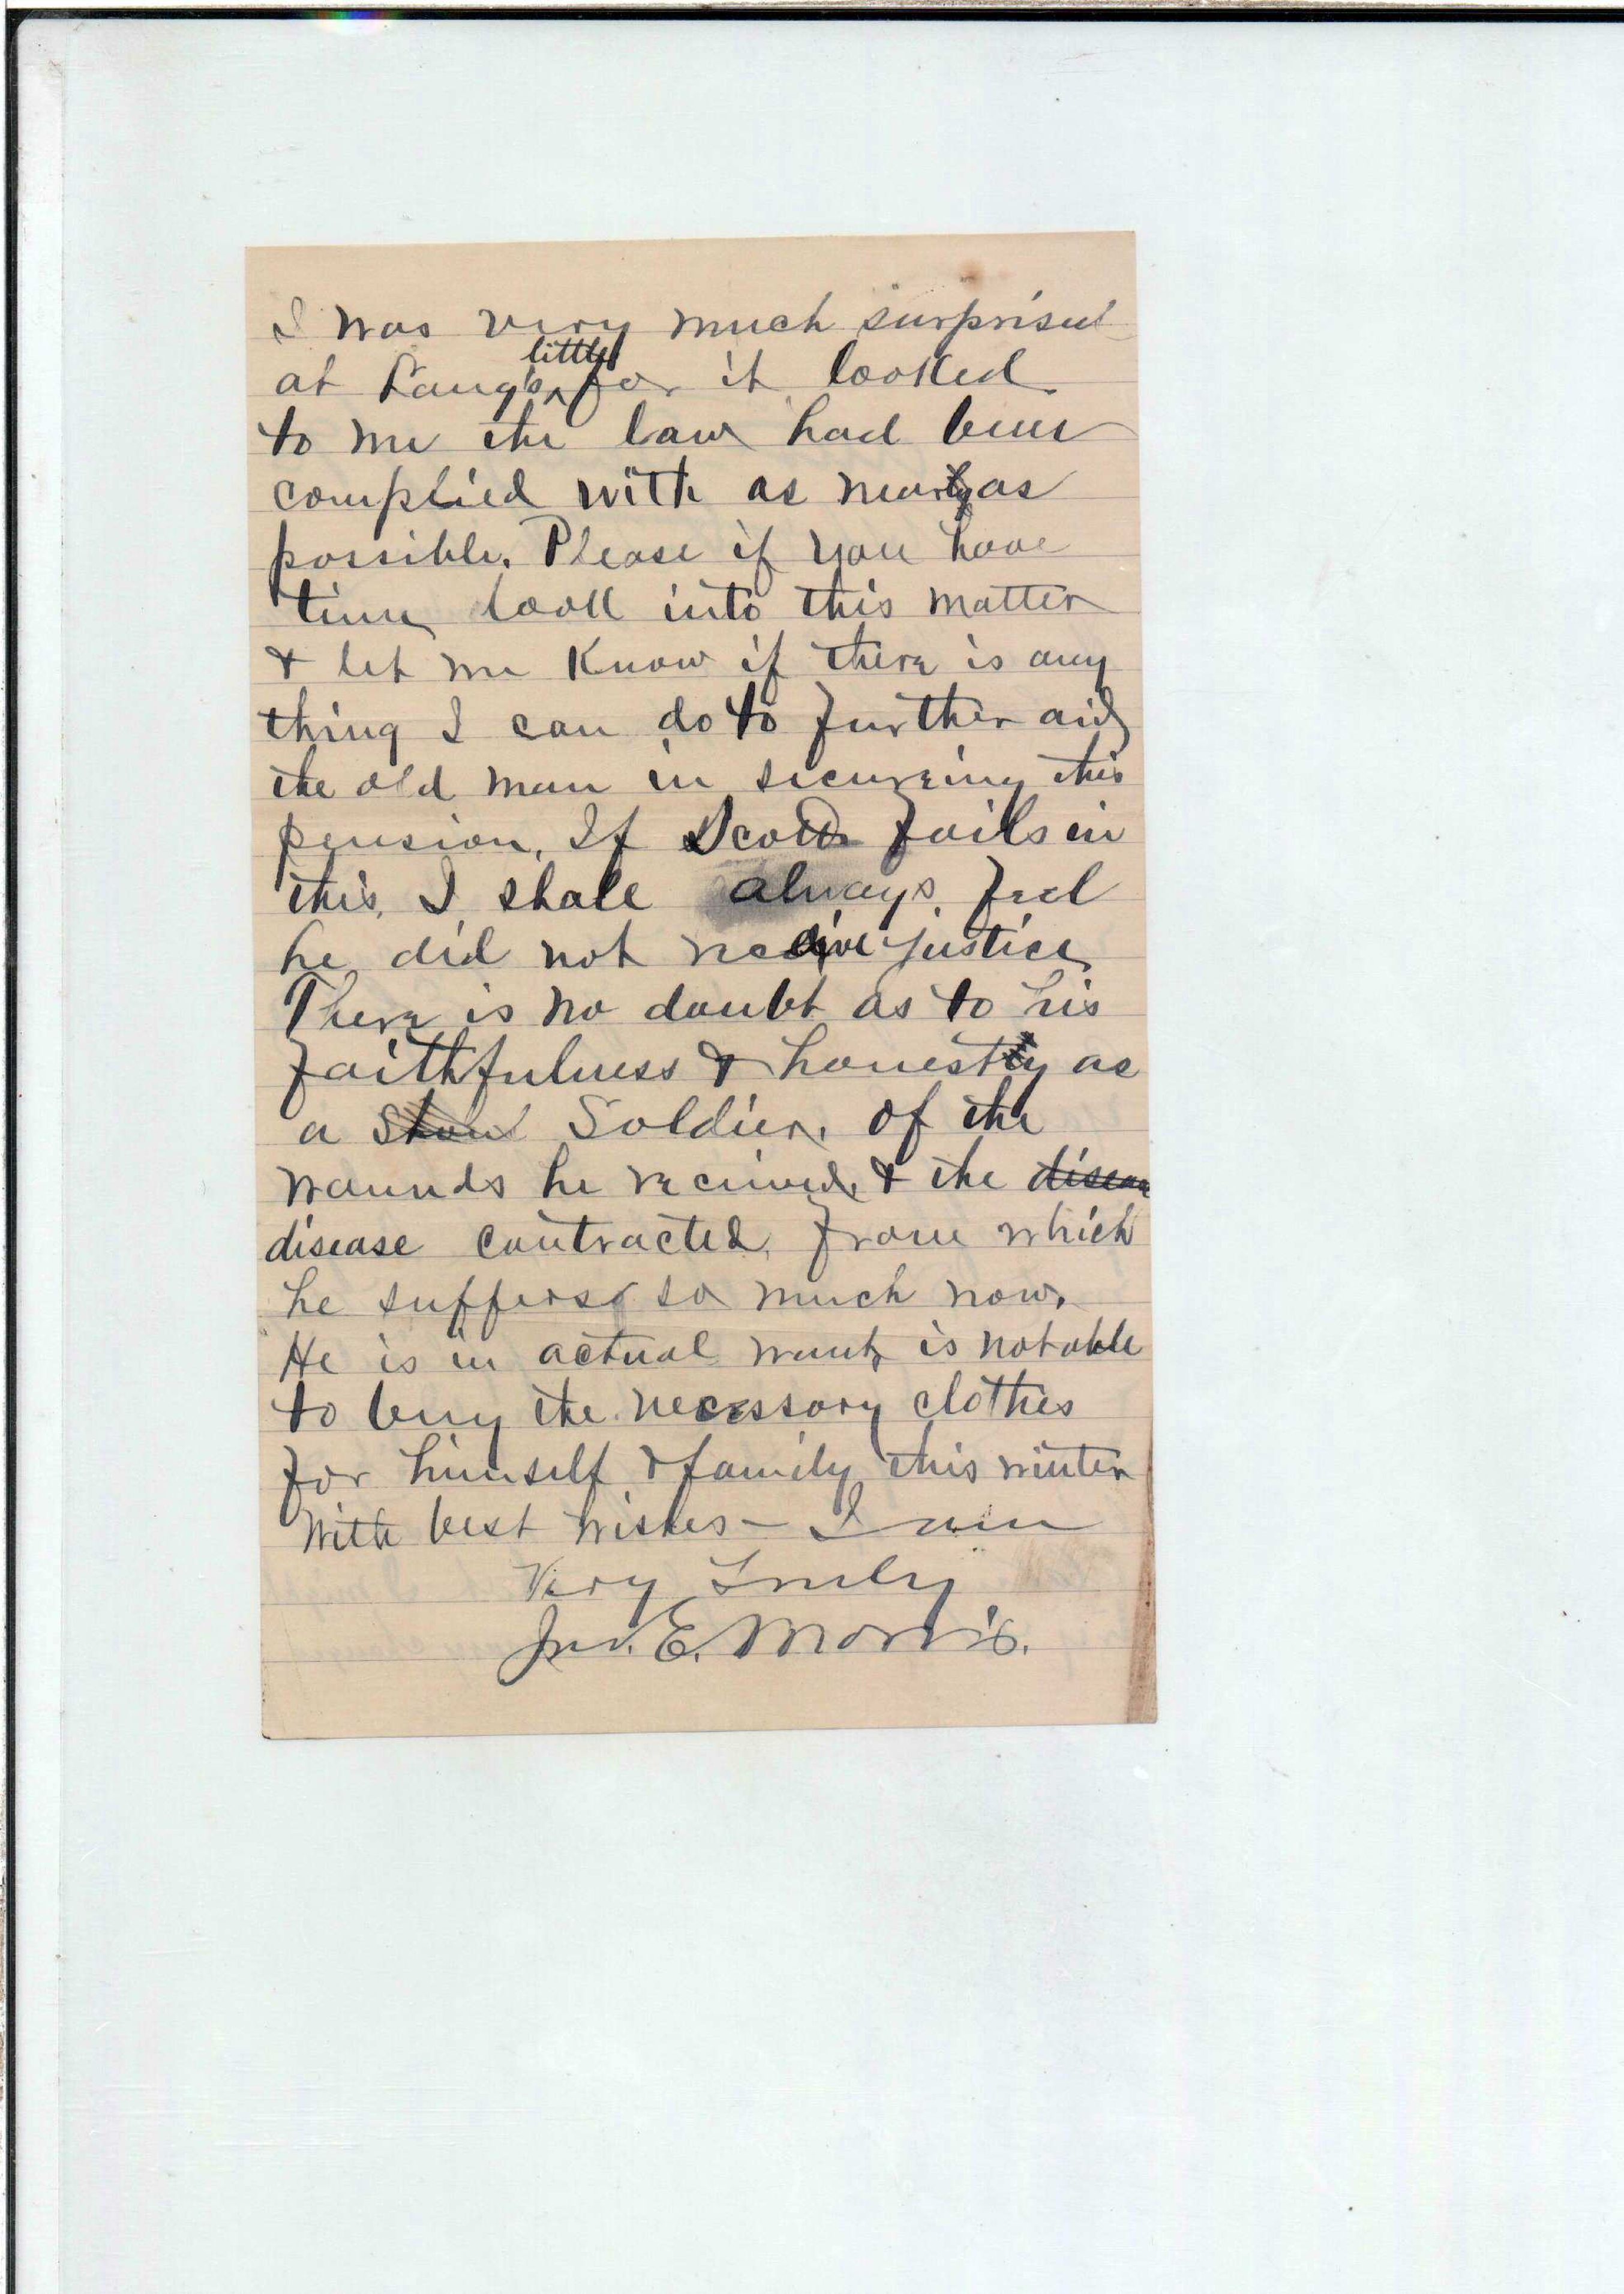 I was very much surprised
at Lang's little for it looked
to me the law had been
complied with as near as
possible. Please if you have
time look into this matter
& let me Know if there is any
thing I can do to further aid
the old man in securing this
pension. If Scott fails in
this, I shall always feel
he did not receive justice
There is no doubt as to his
faithfulness & honesty as
a Soldier, of the
wounds he received, & the diseas
disease contracted, from which
he suffers so much now.
He is in actual want, is not able
to buy the necessary clothes
for himself & family this winter
With best wishes - I am
Very Truly
Jno. E. Morris.